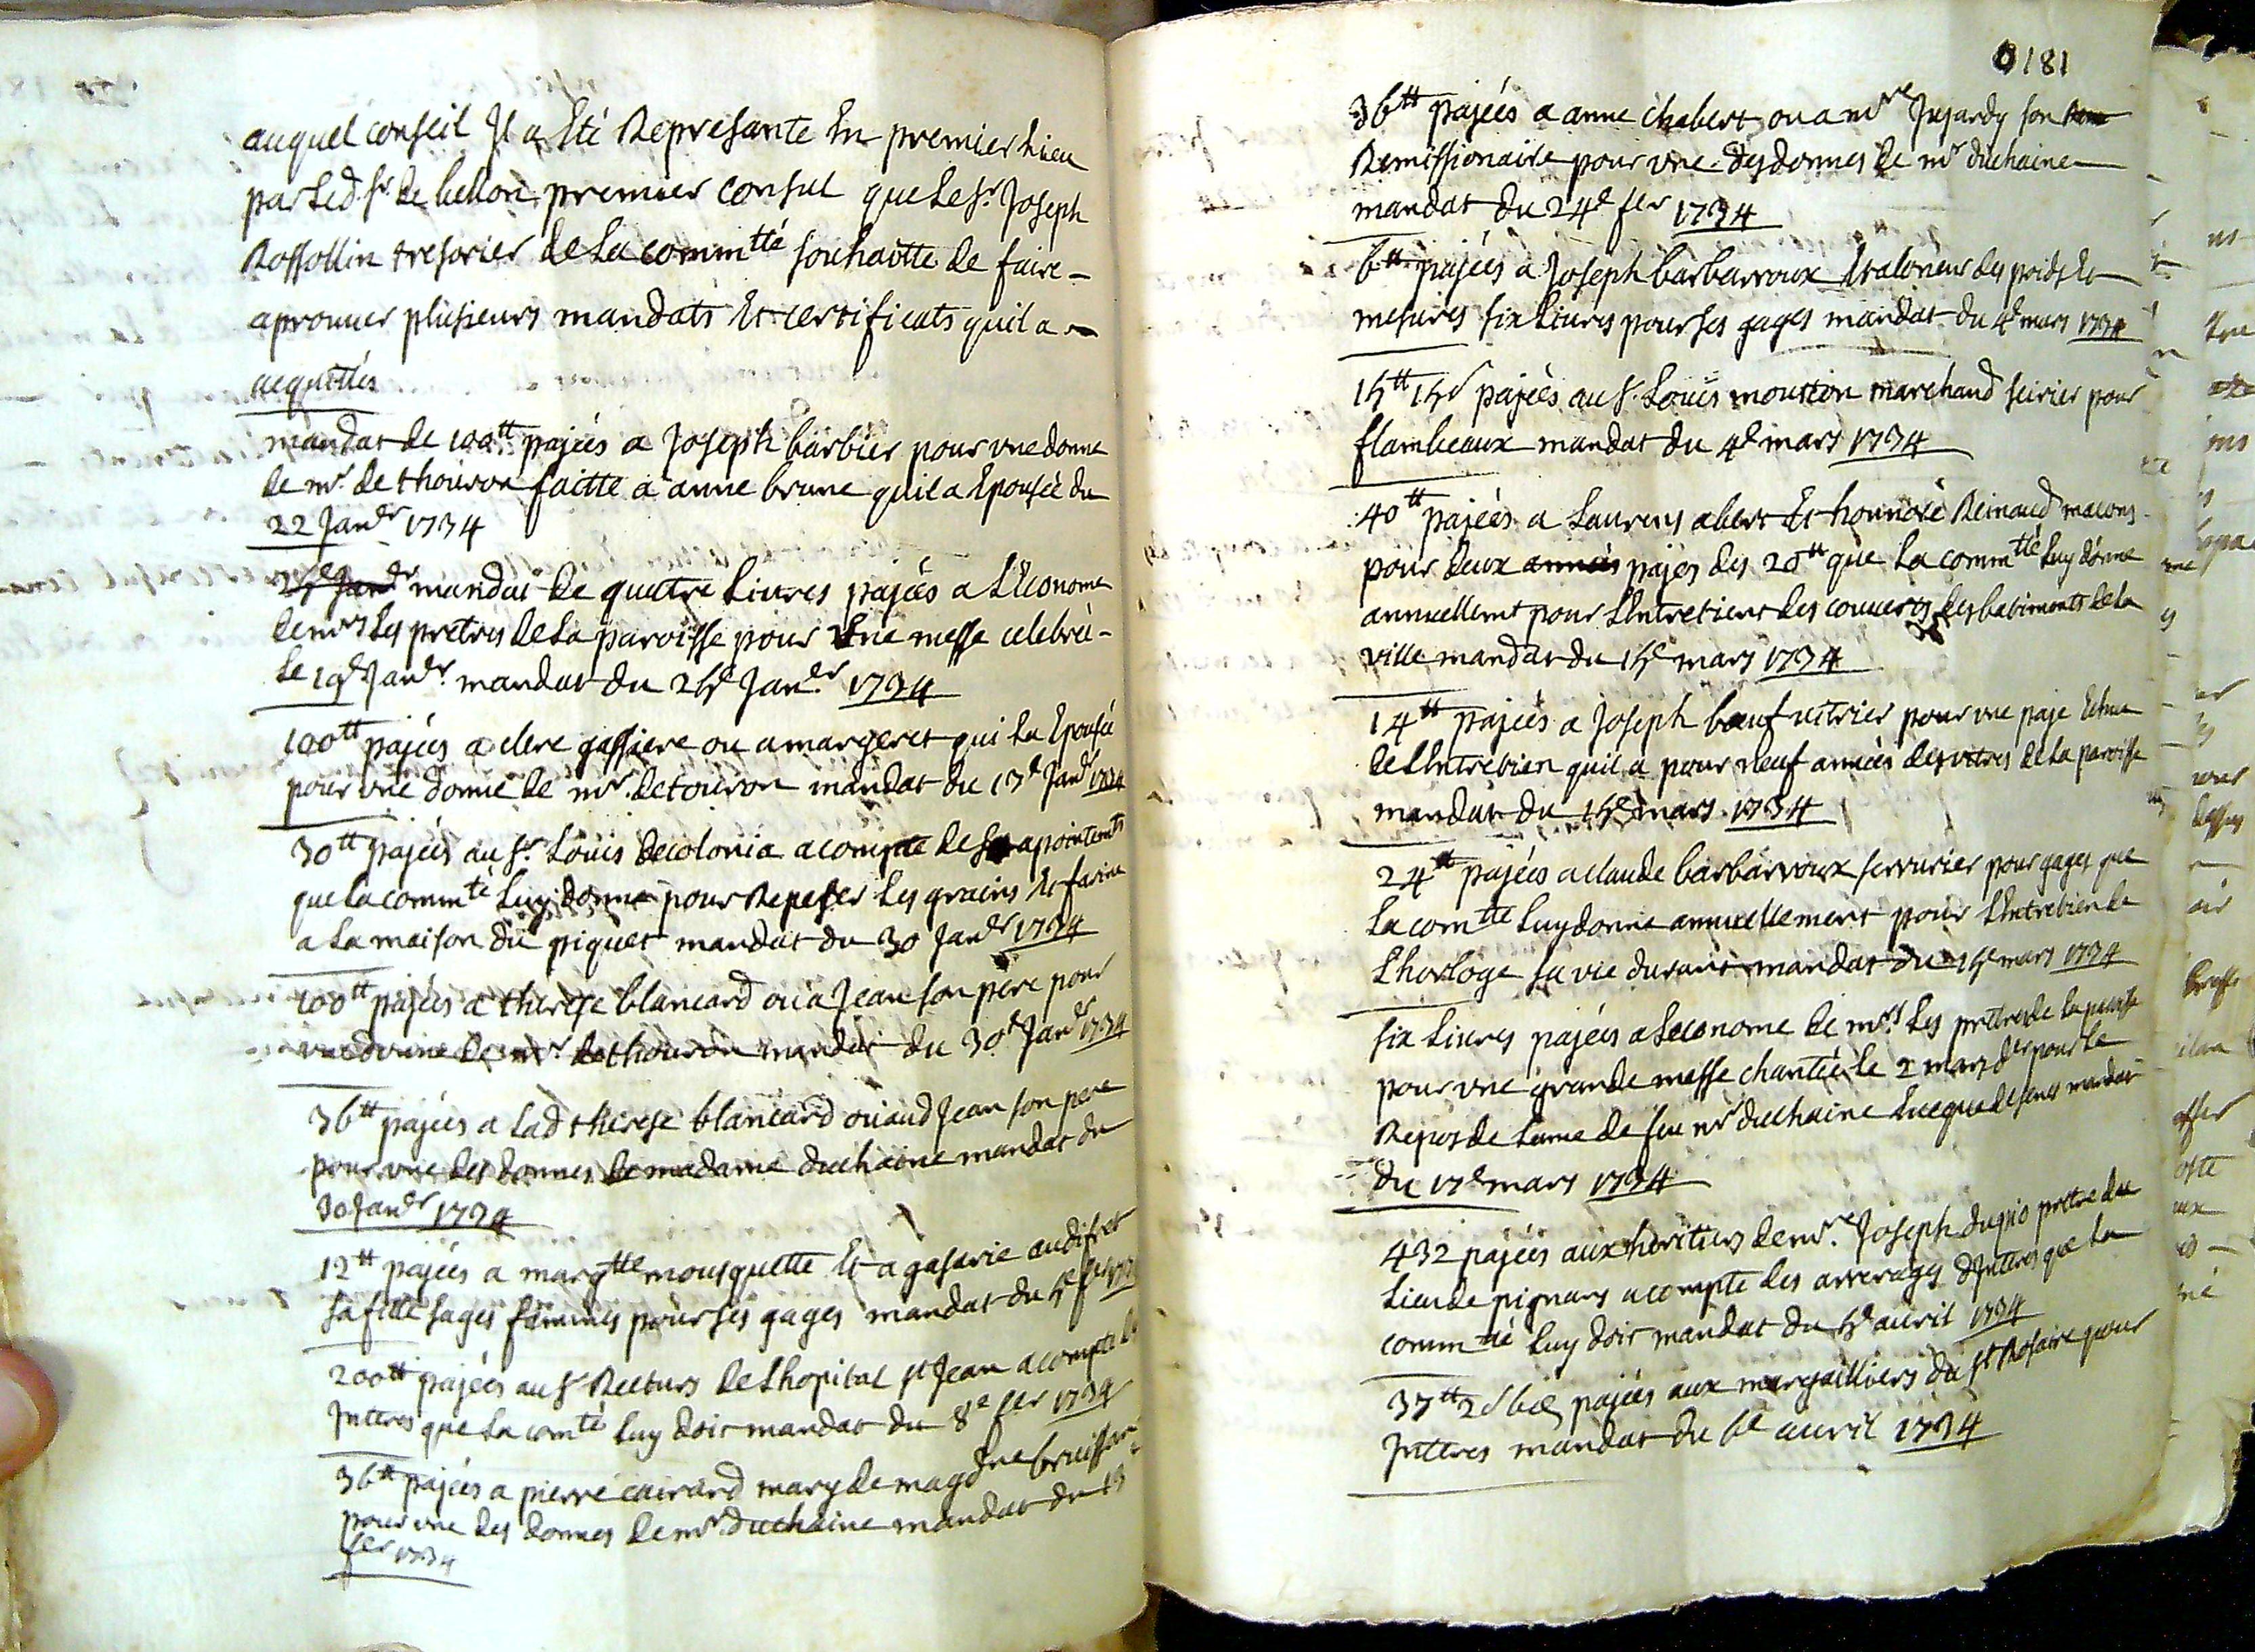 auquel conseil Jl a Eté Represante En premier Lieu
par Led. sr. de bellon premier consul que Le sr. Joseph
Rossollin tresorier de La commtté souhaitte de faire -
aprouuer plusieurs mandats Et certificats quil a
aequittés
mandat de 100tt pajeés a Joseph barbier pour vne donne
de mr. de thouron faitte a anne brune quil a Epouseé du
22 Janer 1734
mandat de quattre Liures pajeés a L'Econome
de mrs Les pretres de La paroisse pour Vne messe celebreé -
Le 19e Janer. mandat du 25e Janer 1734
100tt pajeés a clere gassiere ou a margeret qui La Epouseé
pour vne donne de mr. de touron mandat du 13e Janer 1734
30tt pajeés au sr. Louis decolonia acompte de apointemts
que La commté Luy donne pour Repeser Les grains Et farine
a La maison du piquet mandat du 30 Janer 1734
100tt pajeés a therese blancard ou a Jean son pere pour
vne donne de mr. de thouron mandat du 30e Janer 1734
36tt pajeés a Lad therese blancard ou aud Jean son pere
pour vne des donnes de madame duchaine mandat du
30 Janer 1734
12tt pajeés a margtte mousquette Et a gasarie audifret
sa fille sages femmes pour ses gages mandat du 5e fer 1734
200tt pajeés au sr Recturs de Lhopital st Jean acompte
Jnteres que La comté Luy doit mandat du 8e fer 1734
36tt pajeés a pierre cairard mary de magdne
pour vne des donnes de mr duchaine mandat du 13
fer 1734
0181
36tt pajeés a anne chabert ou a mre Jujardy son
Remissionaire pour vne des donnes de mr duchaine
mandat du 24e fer 1734
6tt pajeés a Joseph barbarroux Etaloneur des poids Et
mesures six Liures pour ses gages mandat du 4e mars 1734
15tt 15s pajeés au sr. Louis mouton marchand seirier pour
flambeaux mandat du 4e mars 1734
40tt pajeés a Laurens abert Et honnoré Reinaud macons
pour deux pajes des 20tt que La commtté Luy donne
annuellemt pour LEntretient des couuerts des batiments de La
ville mandat du 15e mars 1734
14tt pajeés a Joseph boeuf uitrier pour vne paje Echue
de LEntretien quil a pour neuf anneés des vitres de La paroisse
mandat du 15e mars 1734
24tt pajeés a claude barbarroux serrurier pour gages que
La comtte Luy donne annuellement pour LEntretien de
Lhorloge sa vie durant mandat du 15e mars 1734
six Liures pajeés a Leconome de mrs Les pretres de La paroisse
pour vne grande messe chanteé Le 2 mars der pour Le
Repos de Lame de feu mr duchaine Eueque de senes mandat
du 17e mars 1734
432 pajeés aux heritiers de mre. Joseph dupio pretre du
Lieu de pignans acompte des arrerages dJnteres que La
commté Luy doit mandat du 5e auril 1734
37tt 2s 6d pajeés aux margailliers du st Rosaire pour
Jnteres mandat du 6e auril 1734